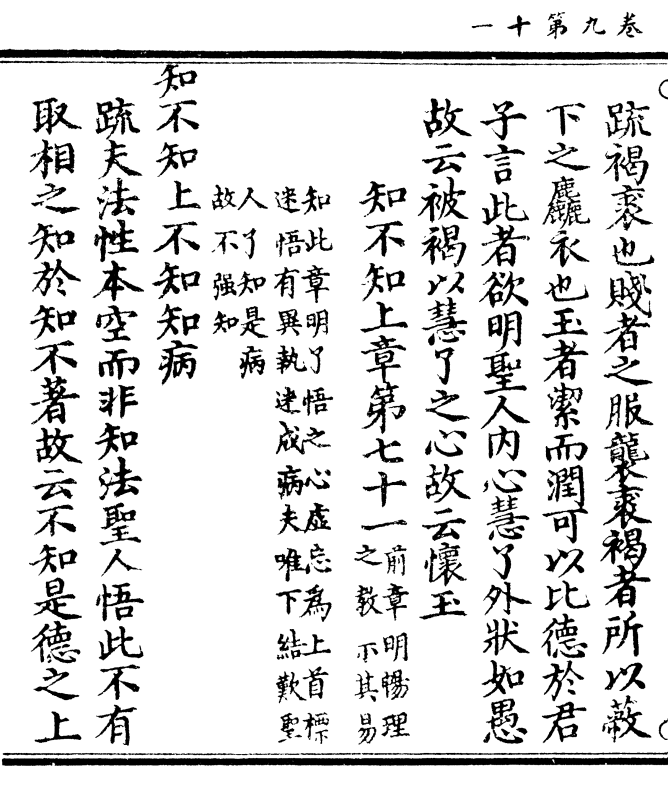 卷九第十一
疏褐裘也賤者之服襲裘褐者所以蔽
下之麤衣也玉者潔而潤可以比德於君
子言此者欲明聖人内心慧了外狀如愚
故云被褐以慧了之心故云懷玉
知不知上章第七十一
前章明暢理
之教不其易
知此章明了悟之心虛忘為上首標
迷悟有異執迷成病夫唯下結歎聖
人了知是病
故不强知
知不知上不知知病
疏夫法性本空而非知法聖人悟此不有
取相之知於知不著故云不知是德之上